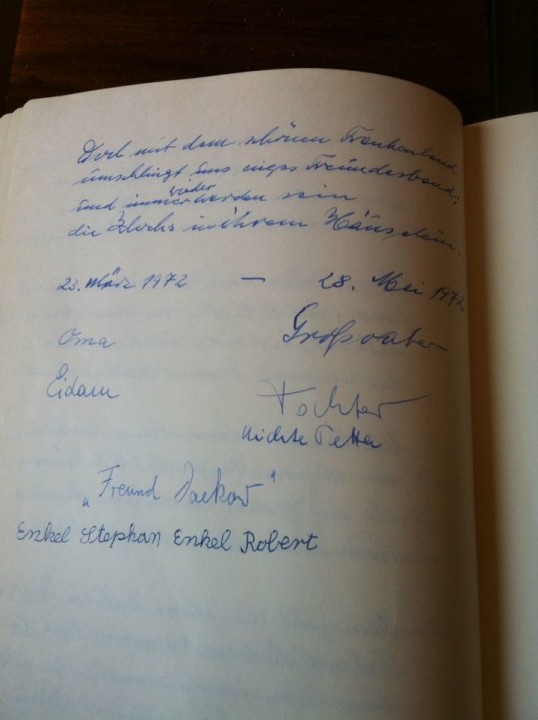 Doch mit dem schönen Frankenland
umschlingt uns enges Freundesband;
und immer wieder werden sein
die Blochs in ihrem Häuslein.
23. März 1972 — 28. Mai 1972
Oma Großvater
Eidam Tochter
Nichte Petta
"Freund
Enkel Stephan Enkel Robert